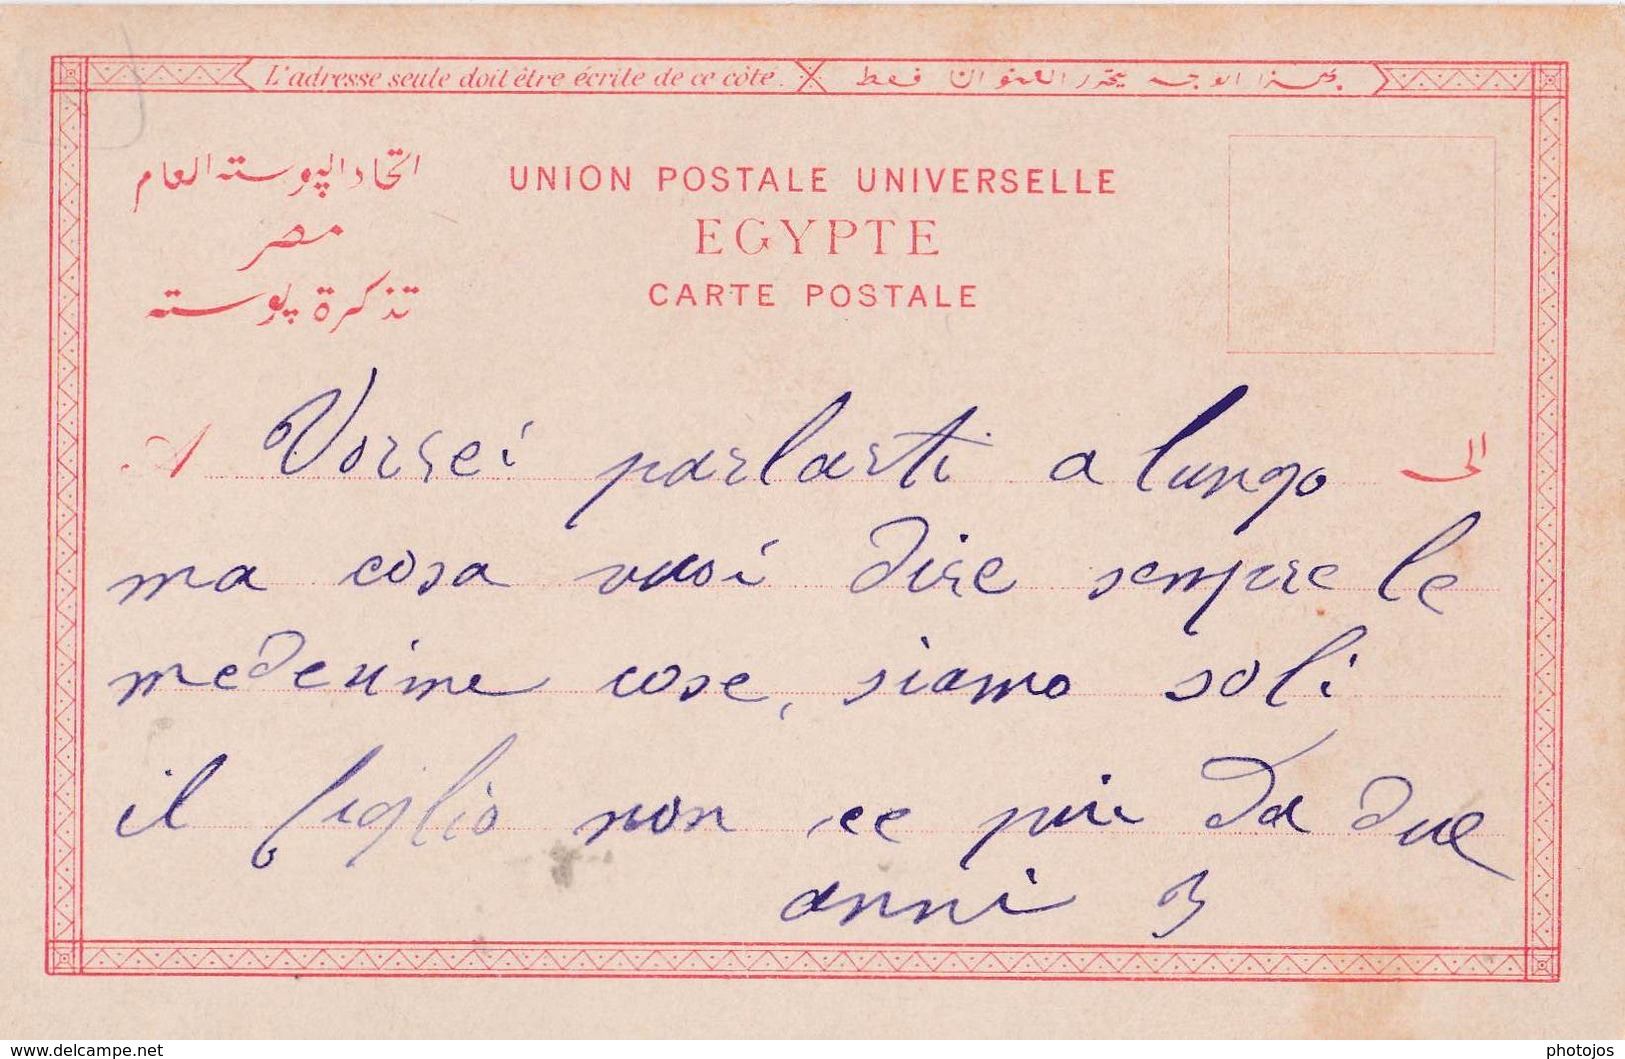 L'adresse seule doit être écrite de ce côté. بهذا الوجه يحرر العنوان فقط
اتحاد الپوسته العام
مصر
تذكرة پوسته
UNION POSTALE UNIVERSELLE
EGYPTE
CARTE POSTALE
A Vorrei parlarti a lungo الى
ma cosa vuoi dire sempre le
medesime cose, siamo soli
il figlio non ce piu da due
anni
delcampe.net
photojos